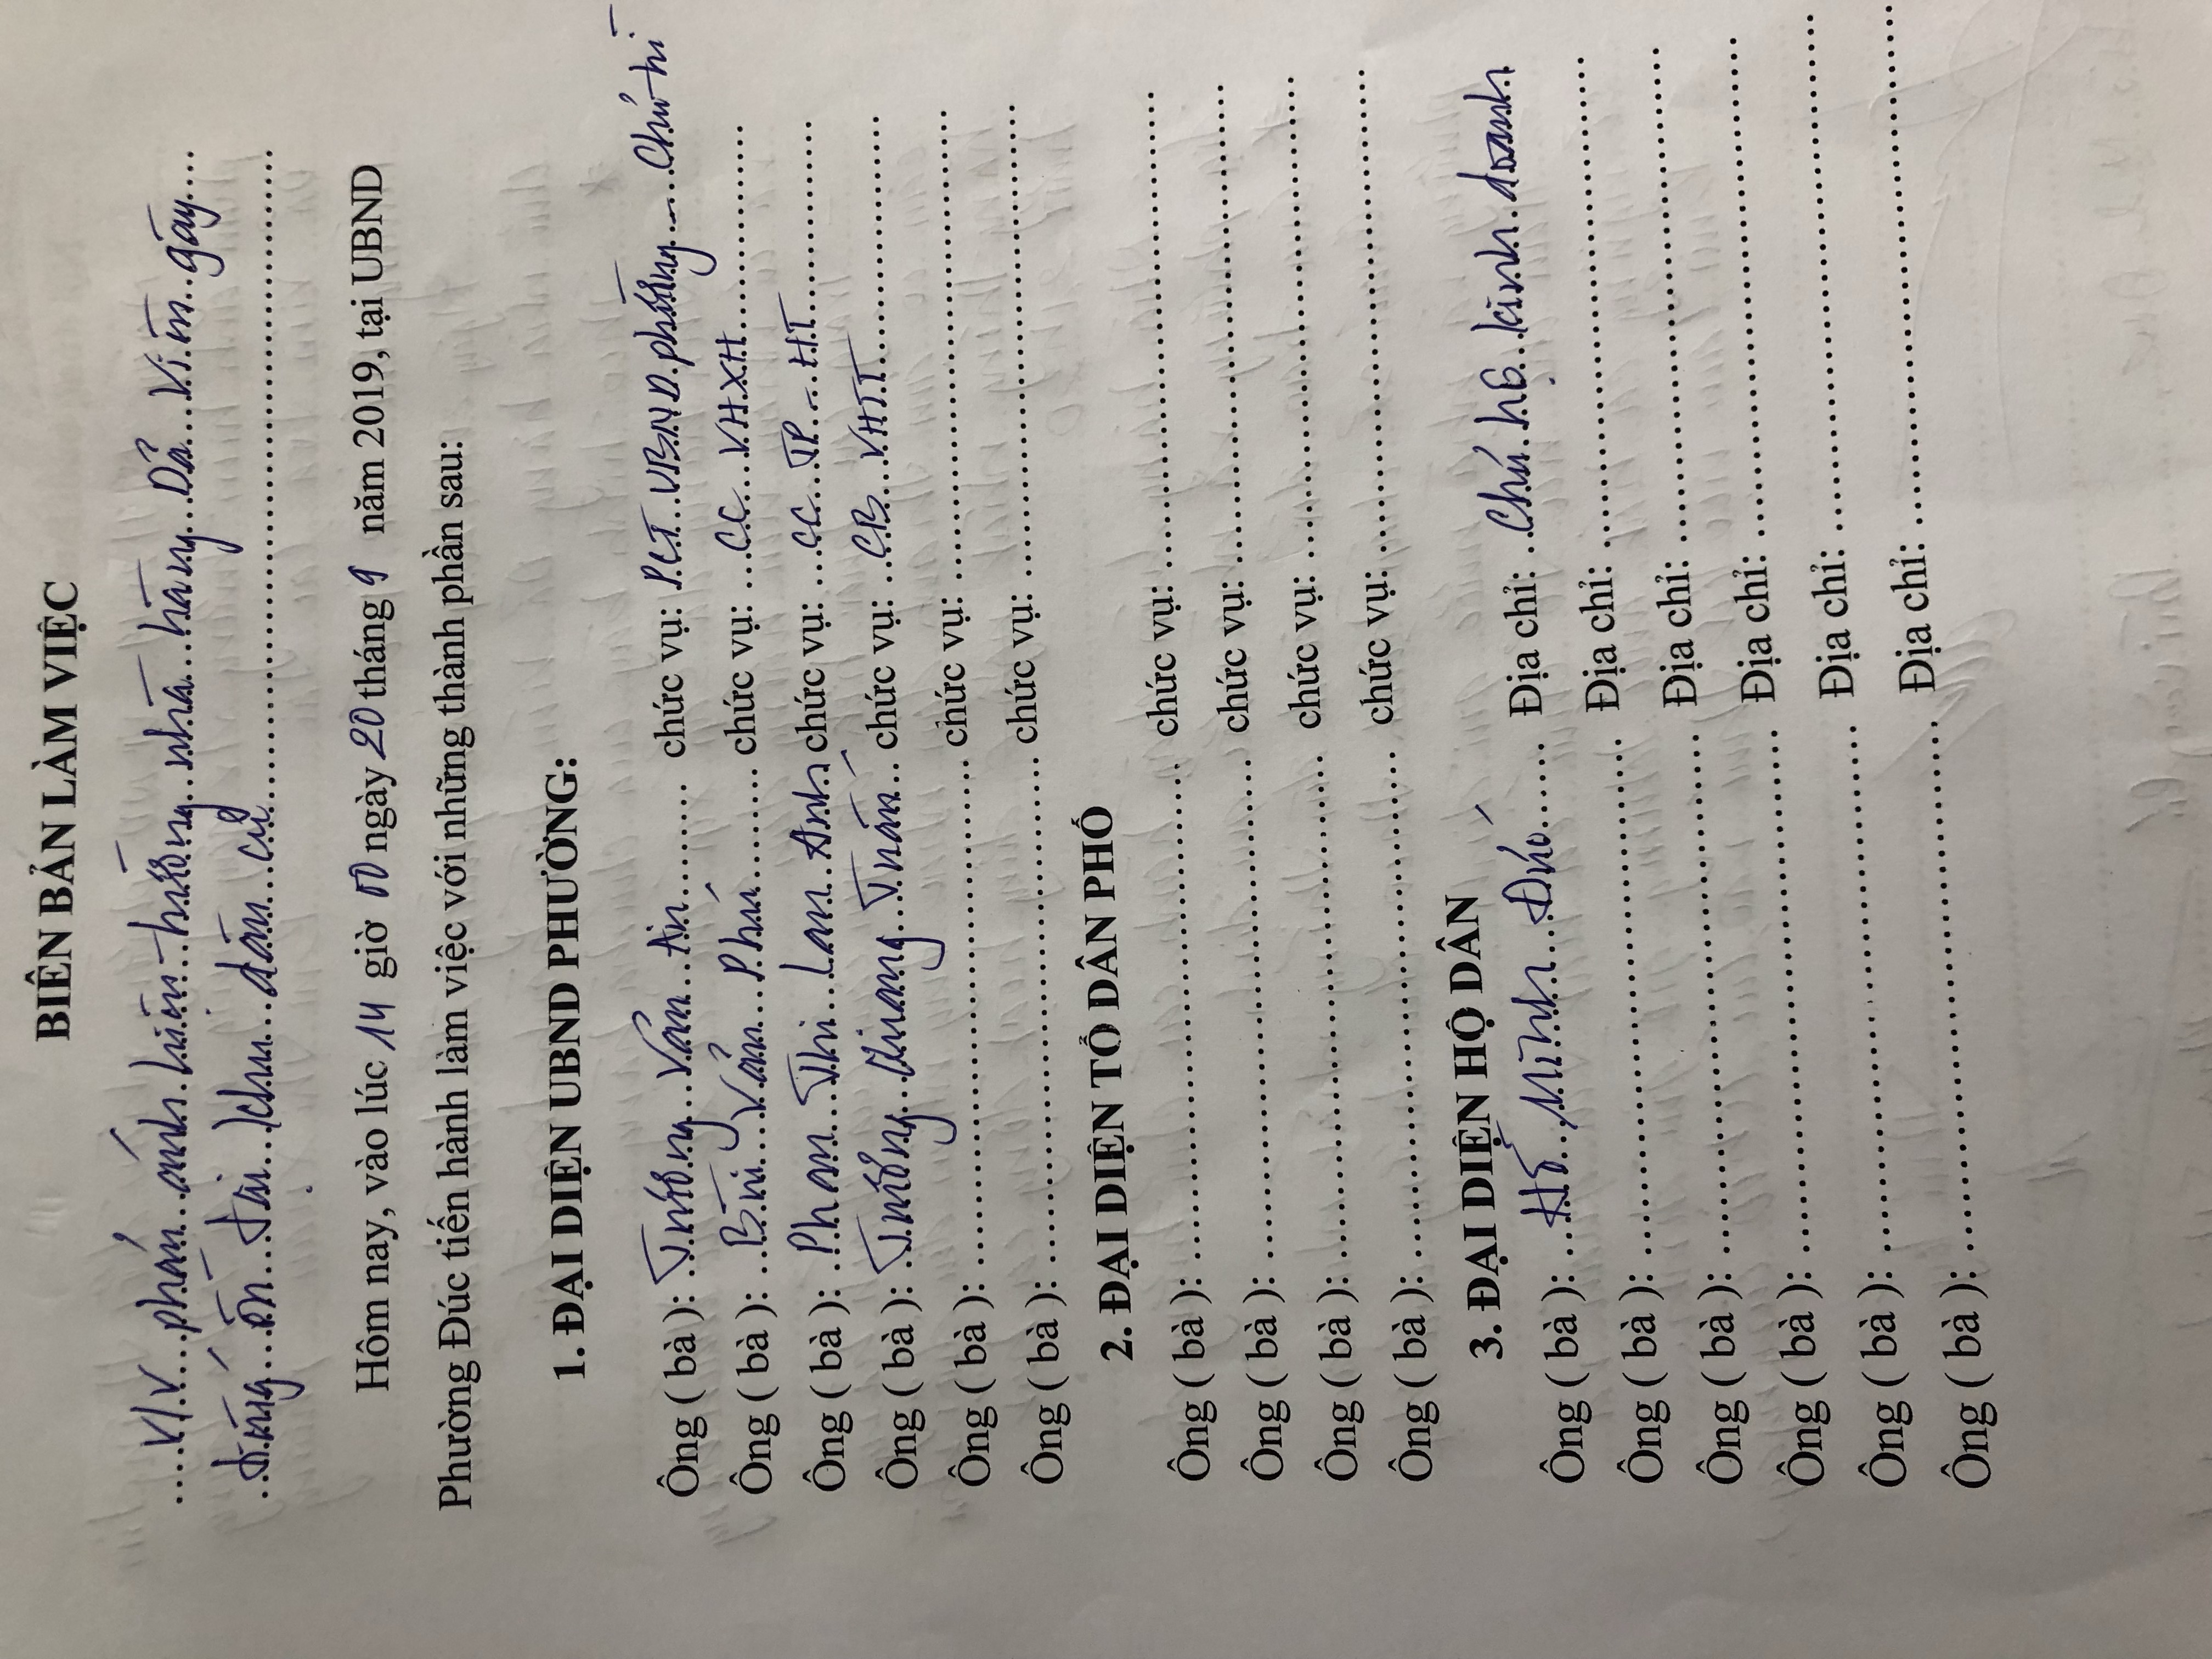 BIÊN BẢN LÀM VIỆC
....V/v...phản...ánh...hiện...tượng...nhà...hàng...Dả...Viên...gây...
..tiếng...ồn...tại...khu...dân...cư......
Hôm nay, vào lúc 14 giờ 00 ngày 20 tháng 9 năm 2019, tại UBND
Phường Đúc tiến hành làm việc với những thành phần sau:
1. ĐẠI DIỆN UBND PHƯỜNG:
Ông ( bà ): Trương...Văn...An......... chức vụ: P.CT...UBND.phường......Chủ trì
Ông ( bà ): ..Bùi...Văn...Phú......... chức vụ: ...CC...VHXH.........
Ông ( bà ): ..Phan...Thị...Lan...Anh chức vụ: ...CC...TP-HT.........
Ông ( bà ): Trương...Quang...Tuấn... chức vụ: ..CB...VHTT.........
Ông ( bà ): ......... chức vụ: .........
Ông ( bà ): ......... chức vụ: .........
2. ĐẠI DIỆN TỔ DÂN PHỐ
Ông ( bà ): ......... chức vụ: .........
Ông ( bà ): ......... chức vụ: .........
Ông ( bà ): ......... chức vụ: .........
Ông ( bà ): ......... chức vụ: .........
3. ĐẠI DIỆN HỘ DÂN
Ông ( bà ): ...Hồ...Minh......... Địa chỉ: ..Chủ...hộ...kinh...doanh
Ông ( bà ): ......... Địa chỉ: .........
Ông ( bà ): ......... Địa chỉ: .........
Ông ( bà ): ......... Địa chỉ: .........
Ông ( bà ): ......... Địa chỉ: .........
Ông ( bà ): ......... Địa chỉ: .........